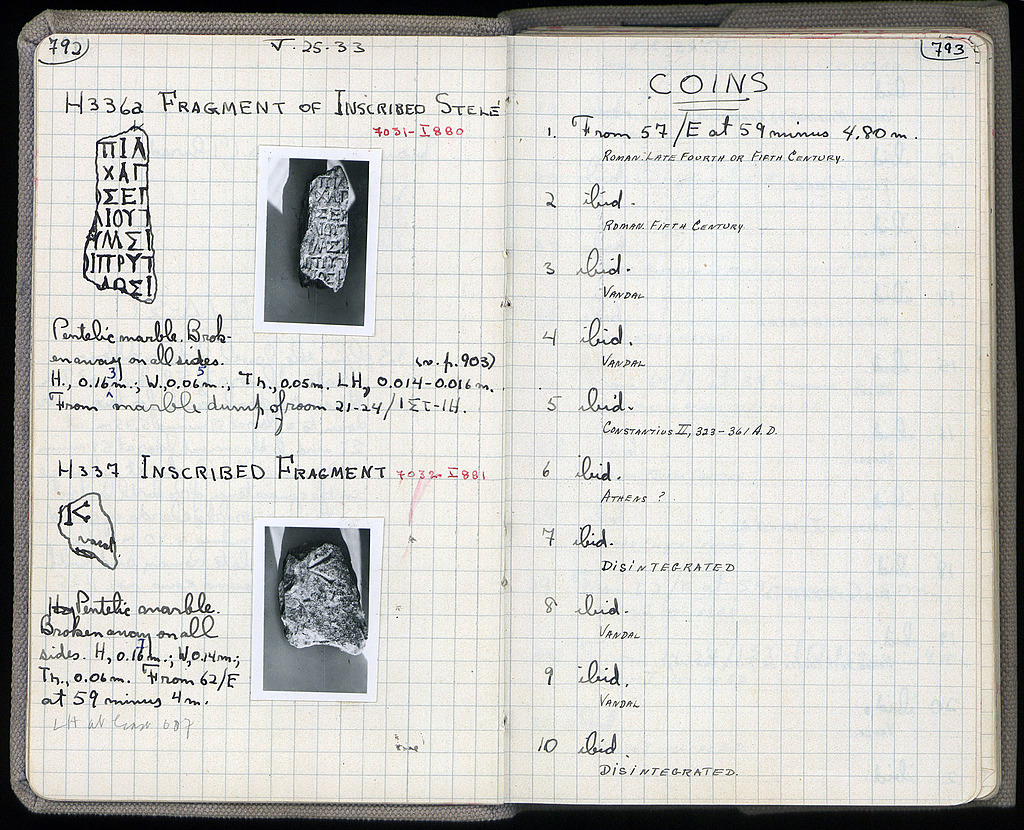 792
V·25·33
H336a FRAGMENT OF INSCRIBED STELE
7031-I880
ΠΙΛ
ΧΑΓ
ΣΕΓ
ΛΙΟΥΤ
ΥΜΣΙ
ΙΠΡΥΤ
ΛΩΣΙ
Pentelic marble. Brok-
en away on all sides. (v. p. 903)
H., 0.163m.; W., 0.065m.; Th., 0.05m. LH, 0.014-0.016m.
From marble dump of room 21-24/ΙΣΤ-ΙΗ.
H337 INSCRIBED FRAGMENT 7032-I881
vacat
Pentelic marble.
Broken away on all
sides. H, 0.167m.; W, 0.14m.;
Th., 0.06m. From 62/E
at 59 minus 4m.
LH at least
793
COINS
1. From 57/E at 59 minus 4.80m.
ROMAN. LATE FOURTH OR FIFTH CENTURY.
2 ibid.
ROMAN. FIFTH CENTURY
3 ibid.
VANDAL
4 ibid.
VANDAL
5 ibid.
CONSTANTIUS II, 323-361 A.D.
6 ibid.
ATHENS ?
7 ibid.
DISINTEGRATED
8 ibid.
VANDAL
9 ibid.
VANDAL
10 ibid.
DISINTEGRATED.